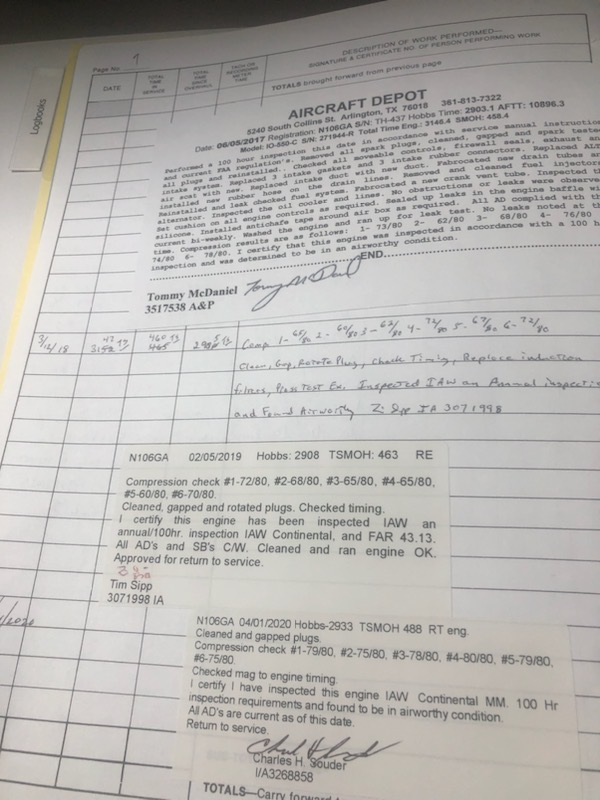 Logbooks
Page No. 9
DESCRIPTION OF WORK PERFORMED—
SIGNATURE & CERTIFICATE NO. OF PERSON PERFORMING WORK
DATE
TOTAL TIME IN SERVICE
TOTAL TIME SINCE OVERHAUL
TACH OR RECORDING METER TIME
TOTALS brought forward from previous page
AIRCRAFT DEPOT
5240 South Collins St. Arlington, TX 76018 361-813-7322
Date: 06/05/2017 Registration: N106GA S/N: TH-437 Hobbs Time: 2903.1 AFTT: 10896.3
Model: IO-550-C S/N: 271944-R Total Time Eng.: 3146.4 SMOH: 458.4
Performed a 100 hour inspection this date in accordance with service manual instruction
and current FAA regulation's. Removed all spark plugs, cleaned, gapped and spark teste
all plugs and reinstalled.. Checked all moveable controls, firewall seals, exhaust an
intake system. Replaced 3 intake gaskets and 3 intake rubber connectors. Replaced ALT
air scat with new. Replaced intake duct with new duct. Fabrocated new drain tubes an
installed new rubber hose on the drain lines. Removed and cleaned fuel injectors
Reinstalled and leak checked fuel system. Fabrocated a new crank vent tube. Inspected t
alternator. Inspected the oil cooler and lines. No obstructions or leaks were observe
Sat cushion on all engine controls as required. Sealed up leaks in the engine baffle wi
silicone. Installed antichafe tape around air box as required. All AD complied with th
current bi-weekly. Washed the engine and ran up for leak test. No leaks noted at th
time. Compression results are as follows: 1- 73/80 2- 62/80 3- 68/80 4- 76/80
74/80 6- 78/80. I certify that this engine was inspected in accordance with a 100 h
inspection and was determined to be in an airworthy condition.
END
Tommy McDaniel
3517538 A&P
3/12/18 Comp 1-65/80 2-60/80 3-62/80 4-72/80 5-67/80 6-72/80
Clean, Gap, Rotate Plugs, Check Timing, Replace induction
filter, Press Test Ex. Inspected IAW an Annual inspecti
and Found Airworthy IA 3071998
N106GA 02/05/2019 Hobbs: 2908 TSMOH: 463 RE
Compression check #1-72/80, #2-68/80, #3-65/80, #4-65/80,
#5-60/80, #6-70/80.
Cleaned, gapped and rotated plugs. Checked timing.
I certify this engine has been inspected IAW an
annual/100hr. inspection IAW Continental, and FAR 43.13.
All AD's and SB's C/W. Cleaned and ran engine OK.
Approved for return to service.
Tim Sipp
3071998 IA
/2020
N106GA 04/01/2020 Hobbs-2933 TSMOH 488 RT eng.
Cleaned and gapped plugs.
Compression check #1-79/80, #2-75/80, #3-78/80, #4-80/80, #5-79/80,
#6-75/80.
Checked mag to engine timing.
I certify I have inspected this engine IAW Continental MM. 100 Hr
inspection requirements and found to be in airworthy condition.
All AD's are current as of this date.
Return to service.
Charles H. Souder
I/A3268858
TOTALS—Carry forward